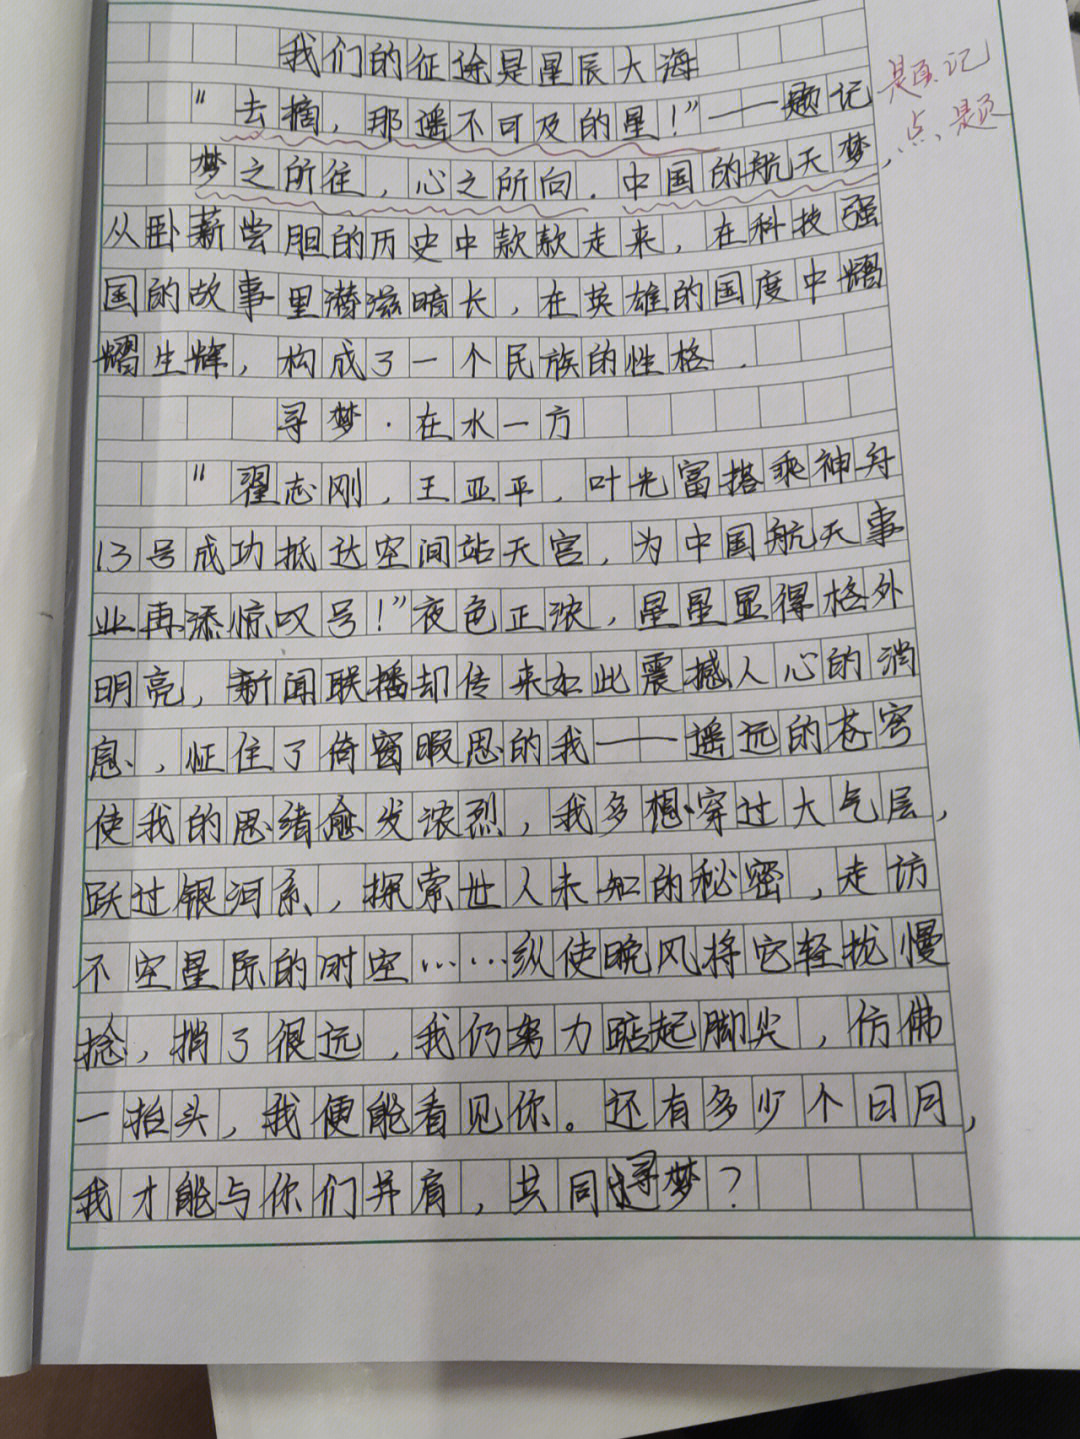 我们的征途是星辰大海
“去摘，那遥不可及的星！”——题记
题记
点题
梦之所往，心之所向．中国的航天梦，
从卧薪尝胆的历史中款款走来，在科技强
国的故事里潜滋暗长，在英雄的国度中熠
熠生辉，构成了一个民族的性格．
寻梦·在水一方
“翟志刚，王亚平，叶光富搭乘神舟
13号成功抵达空间站天宫，为中国航天事
业再添惊叹号！”夜色正浓，星星显得格外
明亮，新闻联播却传来如此震撼人心的消
息，怔住了倚窗暇思的我——遥远的苍穹
使我的思绪愈发浓烈，我多想穿过大气层，
跃过银河系，探索世人未知的秘密，走访
不空星际的时空……纵使晚风将它轻拢慢
捻，捎了很远，我仍努力踮起脚尖，仿佛
一抬头，我便能看见你。还有多少个日月，
我才能与你们并肩，共同寻梦？